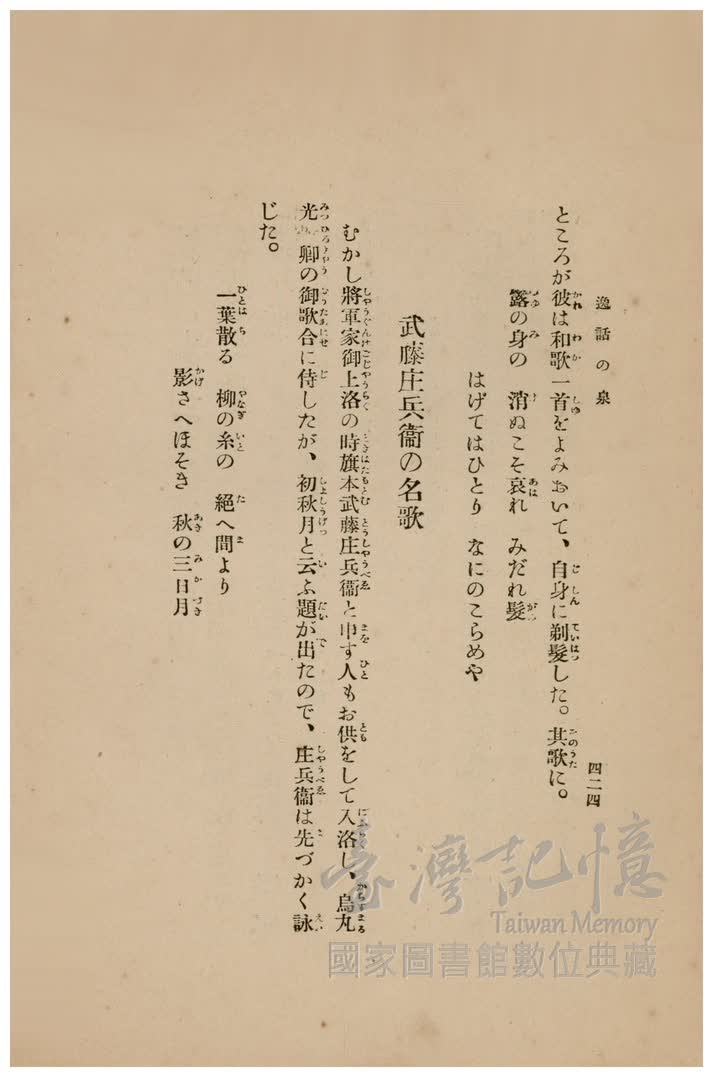 逸話の泉
四二四
ところが彼は和歌一首をよみおいて、自身に剃髮した。其歌に。
露の身の 消ぬこそ哀れ みだれ髮
はげてはひとり なにのこらめや
武藤庄兵衞の名歌
むかし將軍家御上洛の時旗本武藤庄兵衞と申す人もお供をして入洛し、烏丸
光卿の御歌合に侍したが、初秋月と云ふ題が出たので、庄兵衞は先づかく詠
じた。
一葉散る 柳の糸の 絕へ間より
影さへほそき 秋の三日月
臺灣記憶
Taiwan Memory
國家圖書館數位典藏